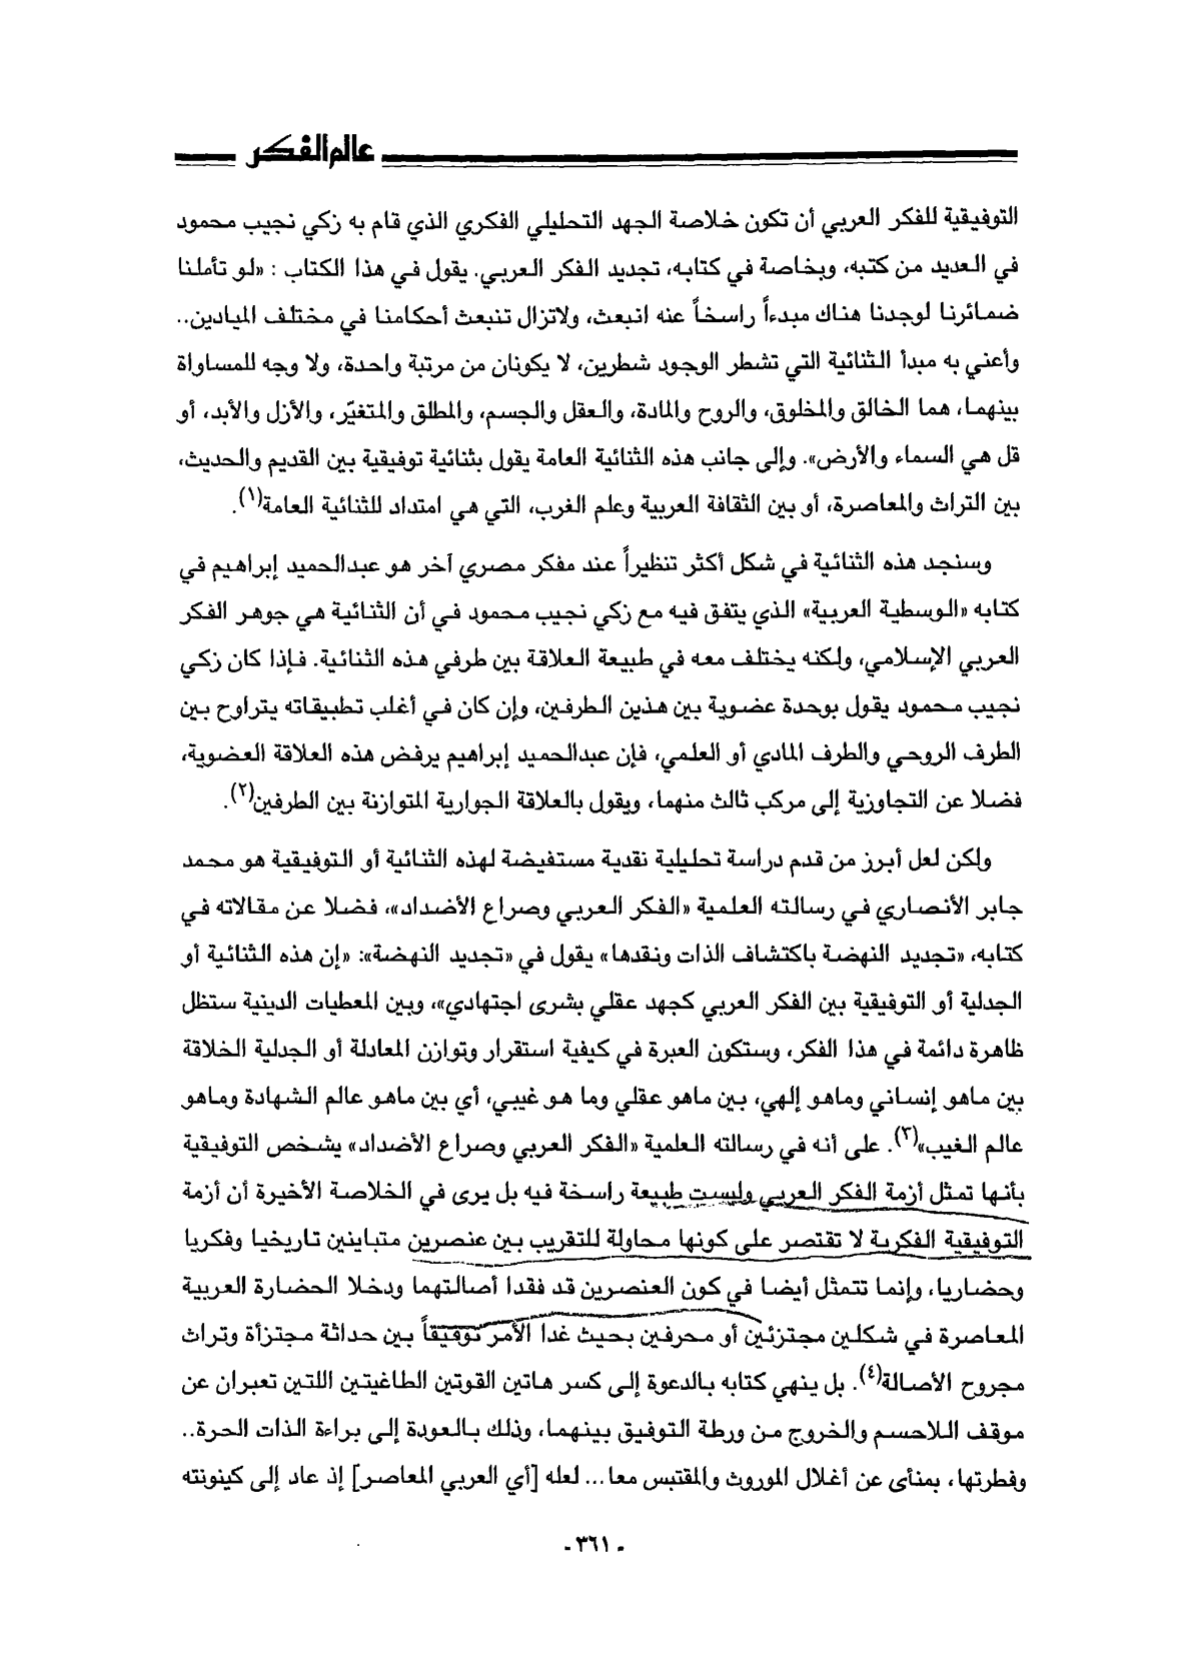 عالم الفكر
التوفيقية للفكر العربي أن تكون خلاصة الجهد التحليلي الفكري الذي قام به زكي نجيب محمود
في العديد من كتبه، وبخاصة في كتابه، تجديد الفكر العربي. يقول في هذا الكتاب : «لو تأملنا
ضمائرنا لوجدنا هناك مبدءاً راسخاً عنه انبعث، ولاتزال تنبعث أحكامنا في مختلف الميادين..
وأعني به مبدأ الثنائية التي تشطر الوجود شطرين، لا يكونان من مرتبة واحدة، ولا وجه للمساواة
بينهما، هما الخالق والمخلوق، والروح والمادة، والعقل والجسم، والمطلق والمتغيّر، والأزل والأبد، أو
قل هي السماء والأرض». وإلى جانب هذه الثنائية العامة يقول بثنائية توفيقية بين القديم والحديث،
بين التراث والمعاصرة، أو بين الثقافة العربية وعلم الغرب، التي هي امتداد للثنائية العامة(١).
وسنجد هذه الثنائية في شكل أكثر تنظيراً عند مفكر مصري آخر هو عبدالحميد إبراهيم في
كتابه «الوسطية العربية» الذي يتفق فيه مع زكي نجيب محمود في أن الثنائية هي جوهر الفكر
العربي الإسلامي، ولكنه يختلف معه في طبيعة العلاقة بين طرفي هذه الثنائية. فإذا كان زكي
نجيب محمود يقول بوحدة عضوية بين هذين الطرفين، وإن كان في أغلب تطبيقاته يتراوح بين
الطرف الروحي والطرف المادي أو العلمي، فإن عبدالحميد إبراهيم يرفض هذه العلاقة العضوية،
فضلا عن التجاوزية إلى مركب ثالث منهما، ويقول بالعلاقة الجوارية المتوازنة بين الطرفين(٢).
ولكن لعل أبرز من قدم دراسة تحليلية نقدية مستفيضة لهذه الثنائية أو التوفيقية هو محمد
جابر الأنصاري في رسالته العلمية «الفكر العربي وصراع الأضداد»، فضلا عن مقالاته في
كتابه، «تجديد النهضة باكتشاف الذات ونقدها» يقول في «تجديد النهضة»: «إن هذه الثنائية أو
الجدلية أو التوفيقية بين الفكر العربي كجهد عقلي بشرى اجتهادي»، وبين المعطيات الدينية ستظل
ظاهرة دائمة في هذا الفكر، وستكون العبرة في كيفية استقرار وتوازن المعادلة أو الجدلية الخلاقة
بين ماهو إنساني وماهو إلهي، بين ماهو عقلي وما هو غيبي، أي بين ماهو عالم الشهادة وماهو
عالم الغيب»(٣). على أنه في رسالته العلمية «الفكر العربي وصراع الأضداد» يشخص التوفيقية
بأنها تمثل أزمة الفكر العربي وليست طبيعة راسخة فيه بل يرى في الخلاصة الأخيرة أن أزمة
التوفيقية الفكرية لا تقتصر على كونها محاولة للتقريب بين عنصرين متباينين تاريخيا وفكريا
وحضاريا، وإنما تتمثل أيضا في كون العنصرين قد فقدا أصالتهما ودخلا الحضارة العربية
المعاصرة في شكلين مجتزئين أو محرفين بحيث غدا الأمر توفيقاً بين حداثة مجتزأة وتراث
مجروح الأصالة(٤). بل ينهي كتابه بالدعوة إلى كسر هاتين القوتين الطاغيتين اللتين تعبران عن
موقف اللاحسم والخروج من ورطة التوفيق بينهما، وذلك بالعودة إلى براءة الذات الحرة..
وفطرتها، بمنأى عن أغلال الموروث والمقتبس معا... لعله [أي العربي المعاصر] إذ عاد إلى كينونته
- ٣٦١ -